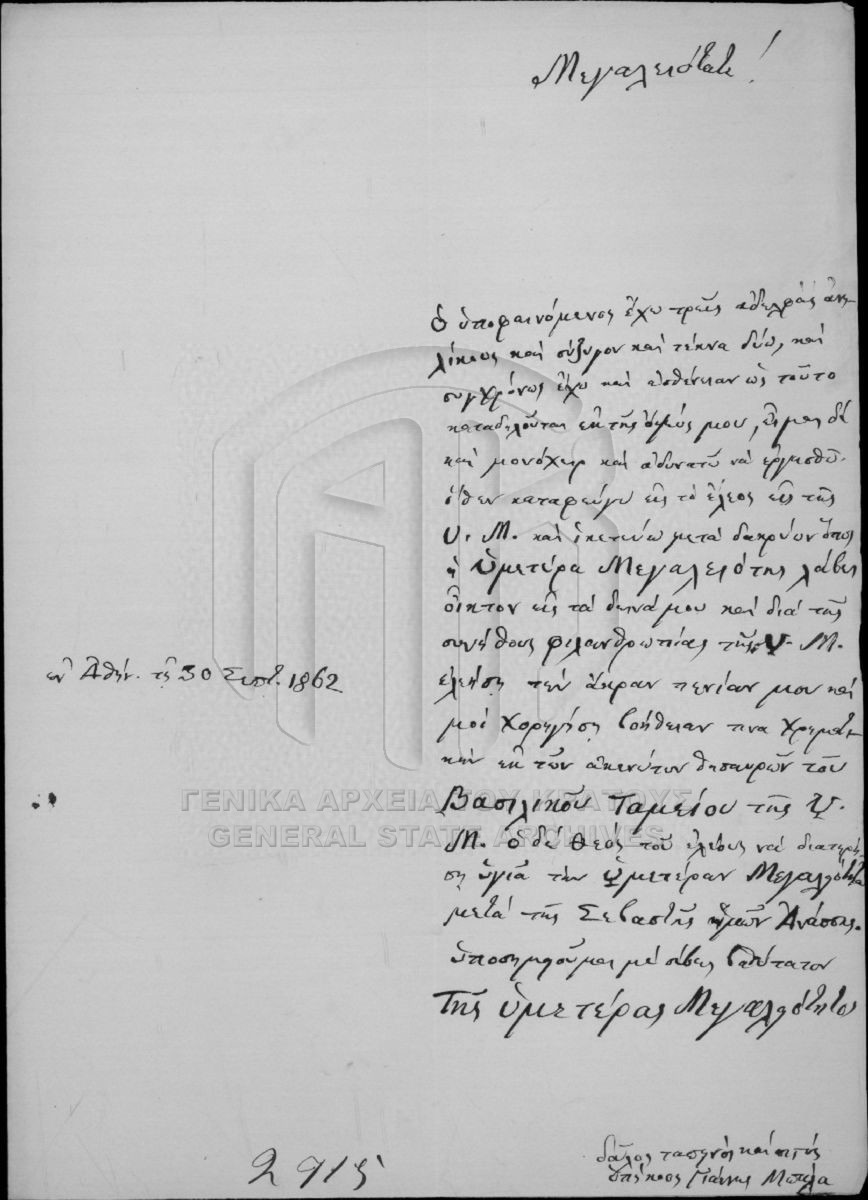 Μεγαλειότατε!
Ὁ ὑποφαινόμενος ἔχω τρεῖς ἀδελφάς ἀνη-
λίκους καί σύζυγον καί τέκνα δύω, καί
συγχρόνως ἔχω καί ἀσθένειαν ὡς τοῦτο
καταδηλοῦται ἐκ τῆς ὄψεώς μου, εἶμαι δέ
καί μονόχειρ καί ἀδυνατῶ νά ἐργασθῶ.
ὅθεν καταφεύγω εἰς τό ἔλεος εἰς τῆς
Υ. Μ. καί ἱκετεύω μετά δακρύων ὅπως
ἡ Ὑμετέρα Μεγαλειότης λάβει
οἶκτον εἰς τά δεινά μου καί διά τῆς
συνήθους φιλανθρωπίας τῆς Υ. Μ.
ἐν Ἀθήν. τῇ 30 Σεπτ. 1862
ἐλεήσῃ τήν ἄκραν πενίαν μου καί
μοί χορηγήσῃ βοήθειαν τινα χρηματι-
κήν ἐκ τῶν ἀκενώτων θησαυρῶν τοῦ
Βασιλικοῦ Ταμείου τῆς Υ.
ΓΕΝΙΚΑ ΑΡΧΕΙΑ ΤΟΥ ΚΡΑΤΟΥΣ
GENERAL STATE ARCHIVES
Μ. ὁ δέ Θεός τοῦ ἐλέους νά διατηρή-
σῃ ὑγιᾶ τήν Ὑμετέραν Μεγαλειότητα
μετά τῆς Σεβαστῆς ἡμῶν Ἀνάσσης.
ὑποσημειοῦμαι μέ σέβας βαθύτατον
Τῆς ὑμετέρας Μεγαλειότητος
δοῦλος ταπεινός καί πιστός
ὑπήκοος Γιάννης
2915